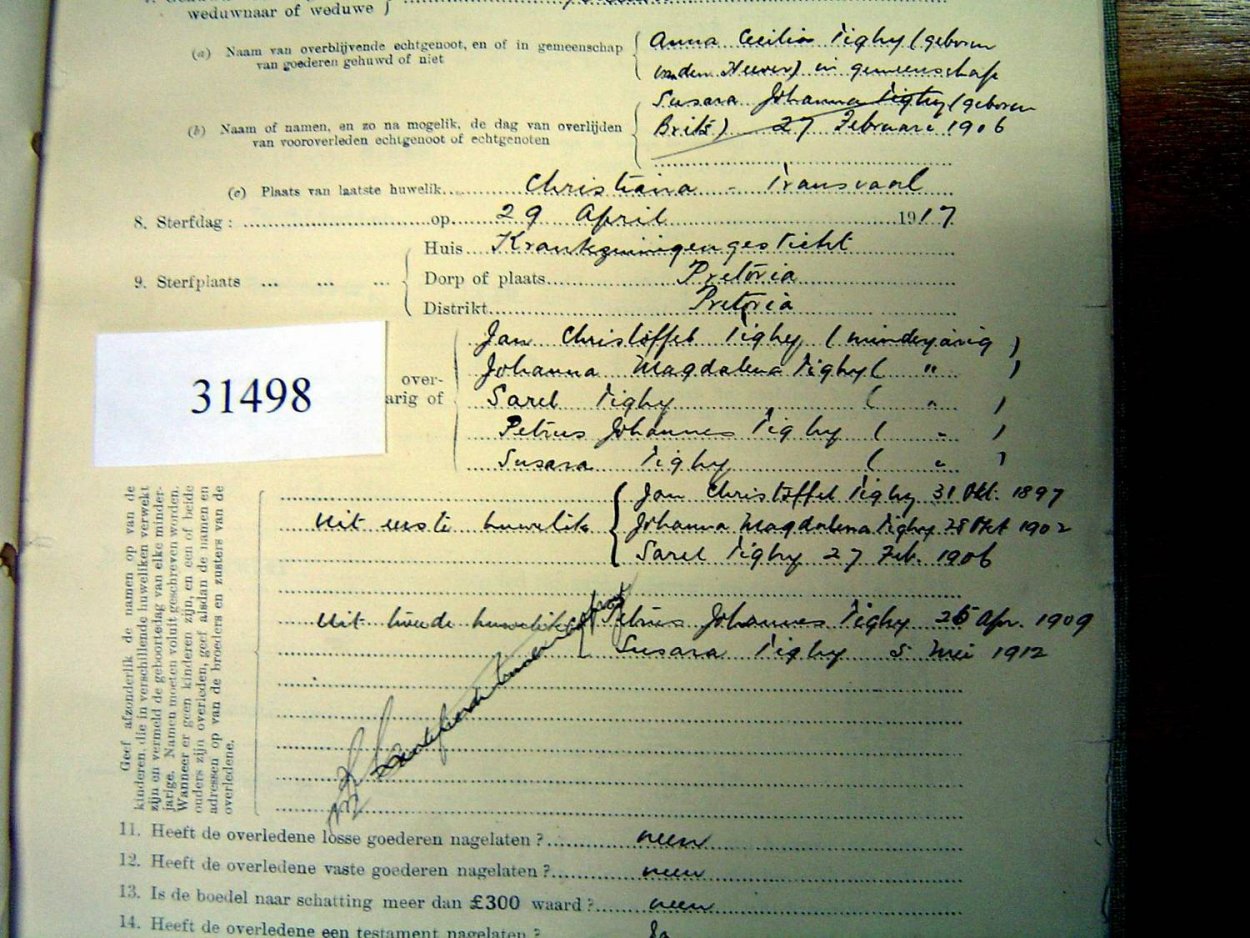 weduwnaar of weduwe
(a) Naam van overblijvende echtgenoot, en of in gemeenschap van goederen gehuwd of niet
Anna Cecilia Tighy (geboren
van den Heever) in gemeenschap
(b) Naam of namen, en zo na mogelik, de dag van overlijden van vooroverleden echtgenoot of echtgenoten
Susara Johanna Tighy (geboren
Brits) 27 Februari 1906
(c) Plaats van laatste huwelik Christiana - Transvaal
8. Sterfdag : op 29 April 1917
9. Sterfplaats ... ... ...
Huis Krankzinnigengesticht
Dorp of plaats Pretoria
Distrikt Pretoria
31498
over-
arig of
Jan Christoffel Tighy (minderjarig)
Johanna Magdalena Tighy ( " )
Sarel Tighy ( " )
Petrus Johannes Tighy ( " )
Susara Tighy ( " )
Geef afzonderlik de namen op van de
kinderen, die in verschillende huweliken verwekt
zijn en vermeld de geboortedag van elke minder-
jarige. Namen moeten voluit geschreven worden.
Wanneer er geen kinderen zijn, en een of beide
ouders zijn overleden, geef alsdan de namen en
adressen op van de broeders en zusters van de
overledene.
Uit eerste huwelik
Jan Christoffel Tighy 31 Okt. 1897
Johanna Magdalena Tighy 28 Okt 1902
Sarel Tighy 27 Feb. 1906
Uit tweede huwelik
Petrus Johannes Tighy 26 Apr. 1909
Susara Tighy 5 Mei 1912
11. Heeft de overledene losse goederen nagelaten ? neen
12. Heeft de overledene vaste goederen nagelaten ? neen
13. Is de boedel naar schatting meer dan £300 waard ? neen
14. Heeft de overledene een testament nagelaten ? Ja